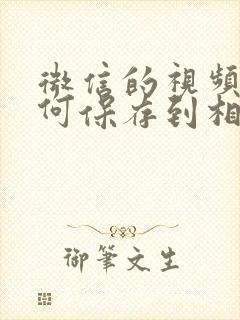 微信的視頻
何保存到相
御筆文生